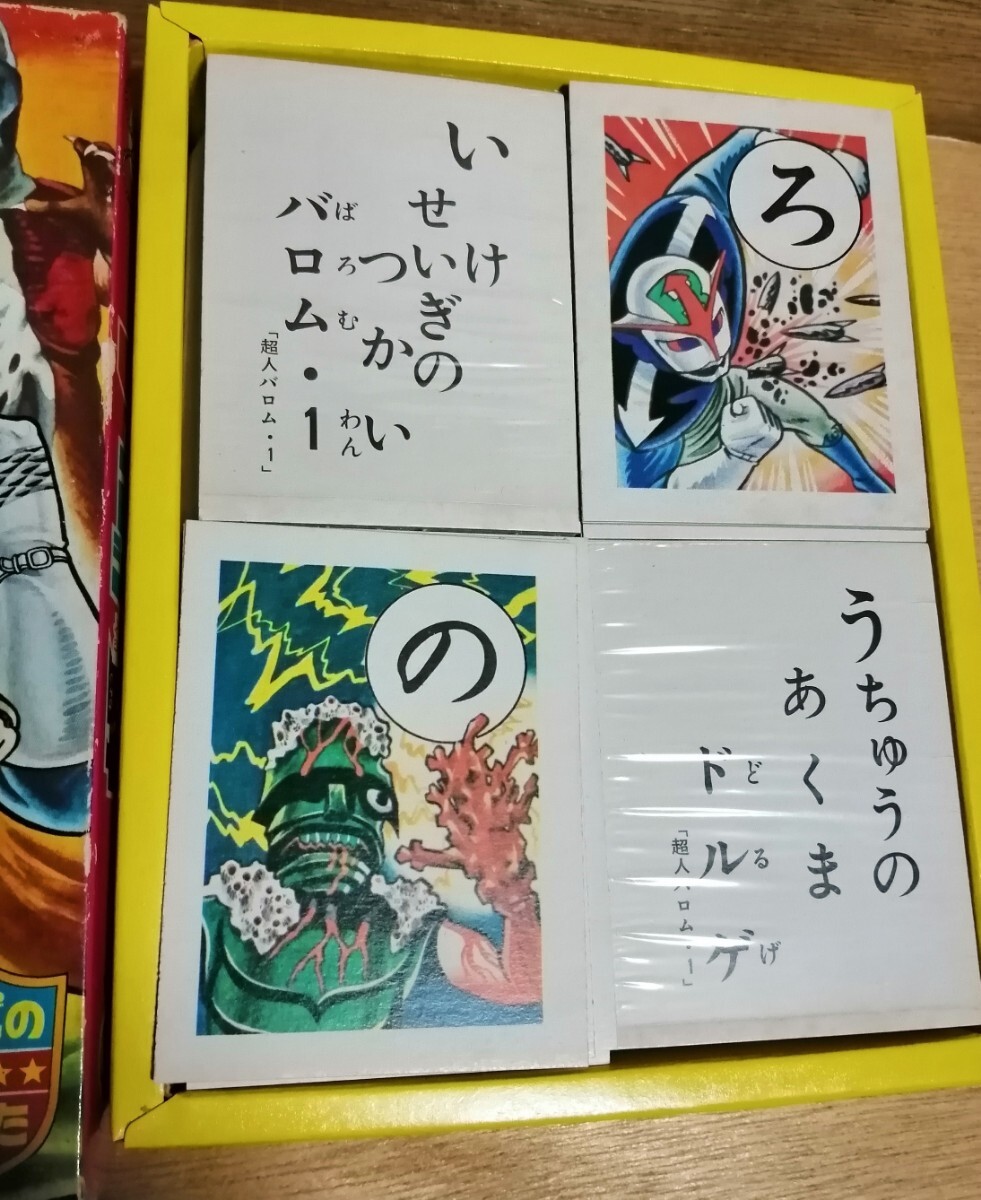 いけ
せいぎの
つかい
バロム・1
ばろむわん
「超人バロム・1」
ろ
の
うちゅうの
あくま
ドルゲ
どるげ
「超人バロム・1」